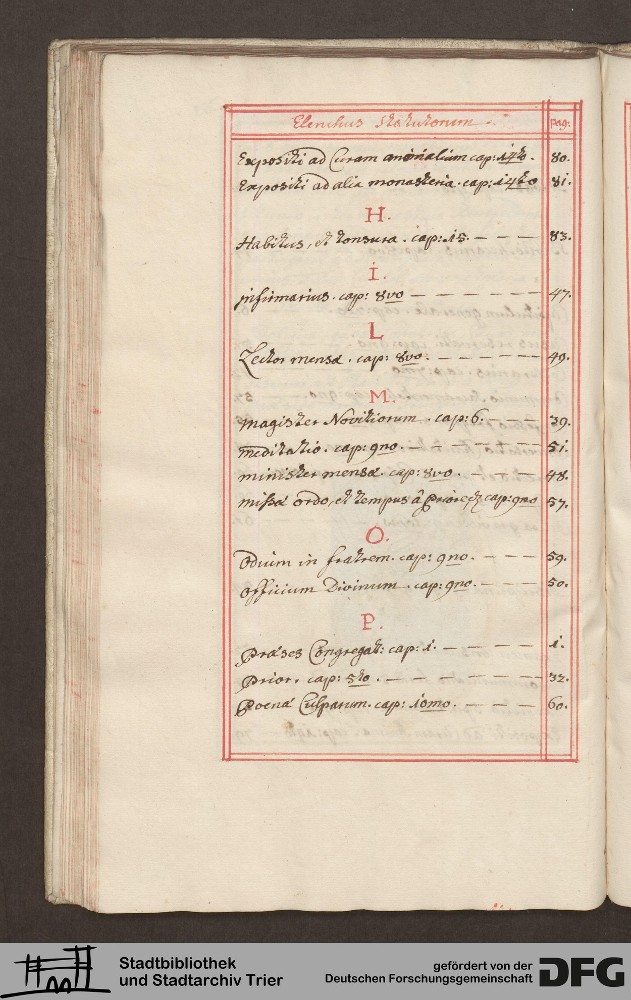 Elenchus Statutorum. pag:
Expositi ad Curam animalium cap: 14to. 80.
Expositi ad alia monasteria. cap: 14to 81.
H.
Habitus, et tonsura. cap: 15. 83.
I.
infirmarius. cap: 8vo 47.
L
Lector mensæ. cap: 8vo. 49.
M.
magister Novitiorum. cap: 6. 39.
meditatio. cap: 9no. 51.
minister mensæ. cap: 8vo. 48.
missæ ordo, et tempus à cap: 9no 57.
O.
Odium in fratrem. cap: 9no. 59.
Officium Divinum. cap: 9no. 50.
P.
Præses Congregat: cap: 1. 1.
Prior. cap: 5to. 32.
Poenæ Culparum. cap: 10mo. 60.
Stadtbibliothek
und Stadtarchiv Trier
gefördert von der
Deutschen Forschungsgemeinschaft
DFG